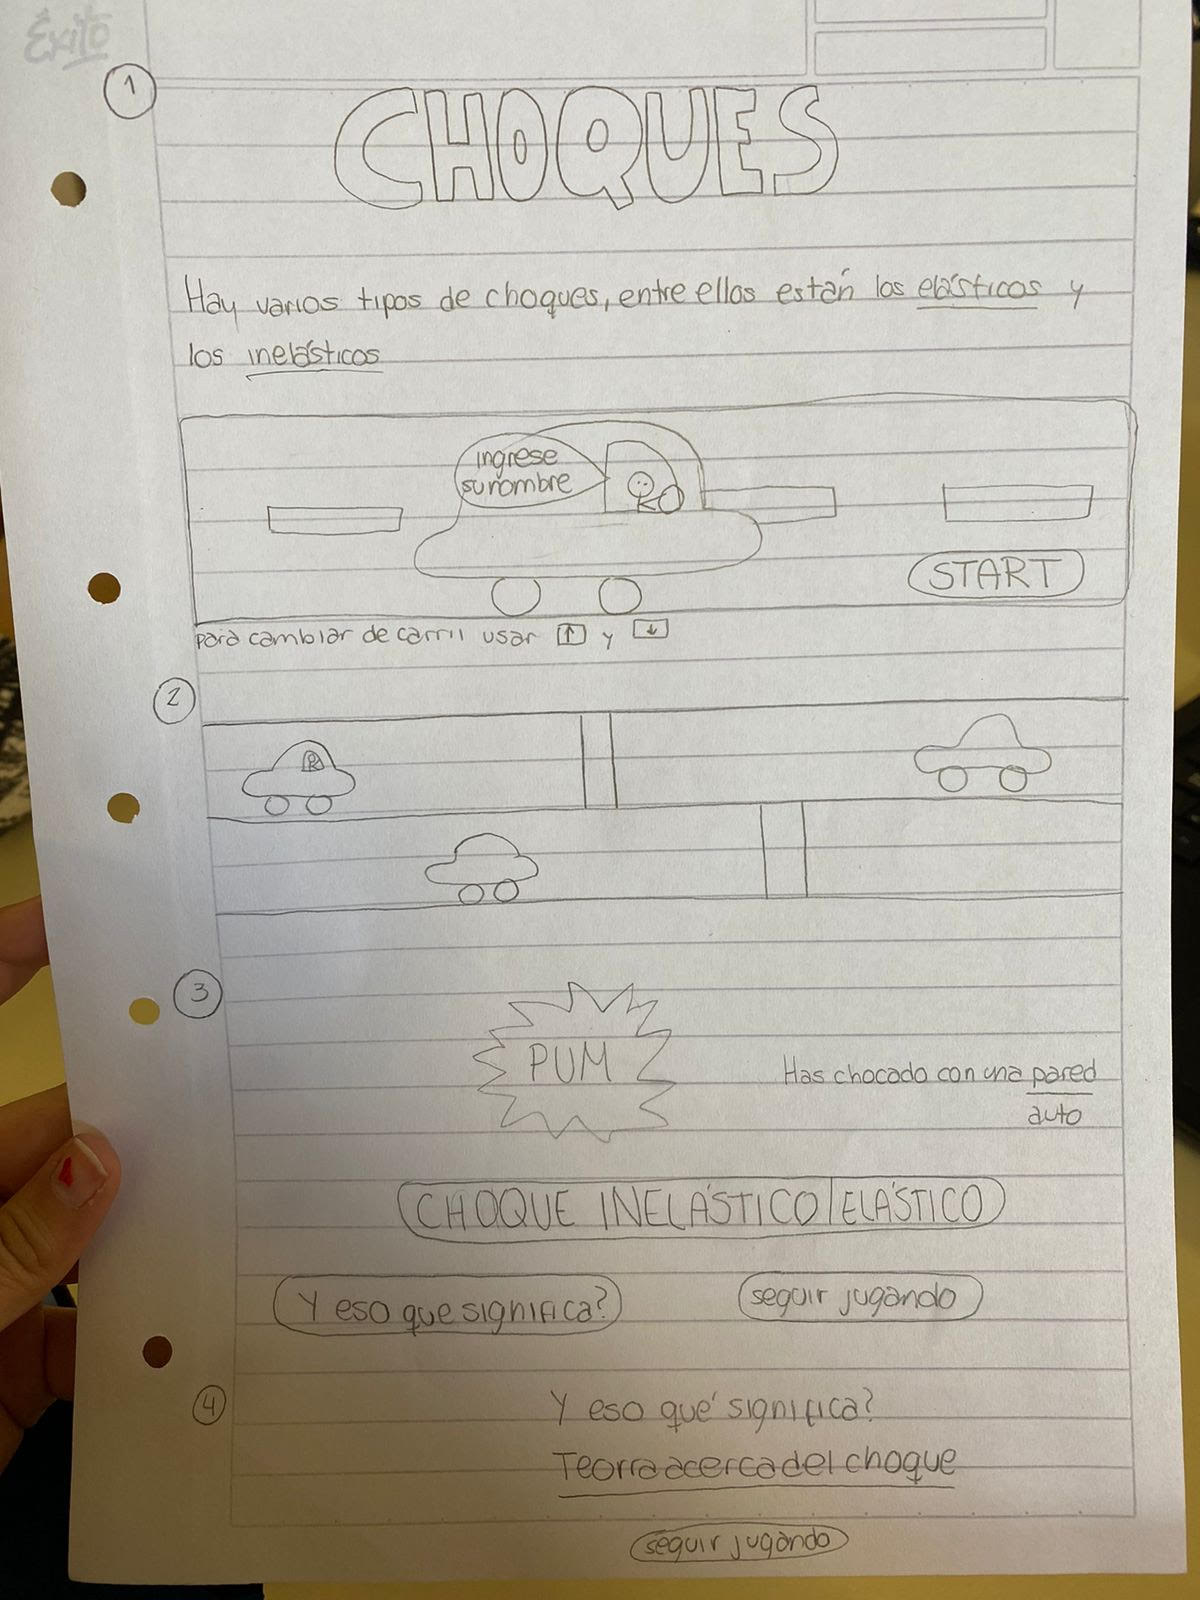 Éxito
1
CHOQUES
Hay varios tipos de choques, entre ellos están los elásticos y
los inelásticos
ingrese
su nombre
START
para cambiar de carril usar ↑ y ↓
2
3
PUM
Has chocado con una pared
auto
CHOQUE INELÁSTICO/ELÁSTICO
Y eso que significa?
seguir jugando
4
Y eso qué significa?
Teoria acerca del choque
seguir jugando